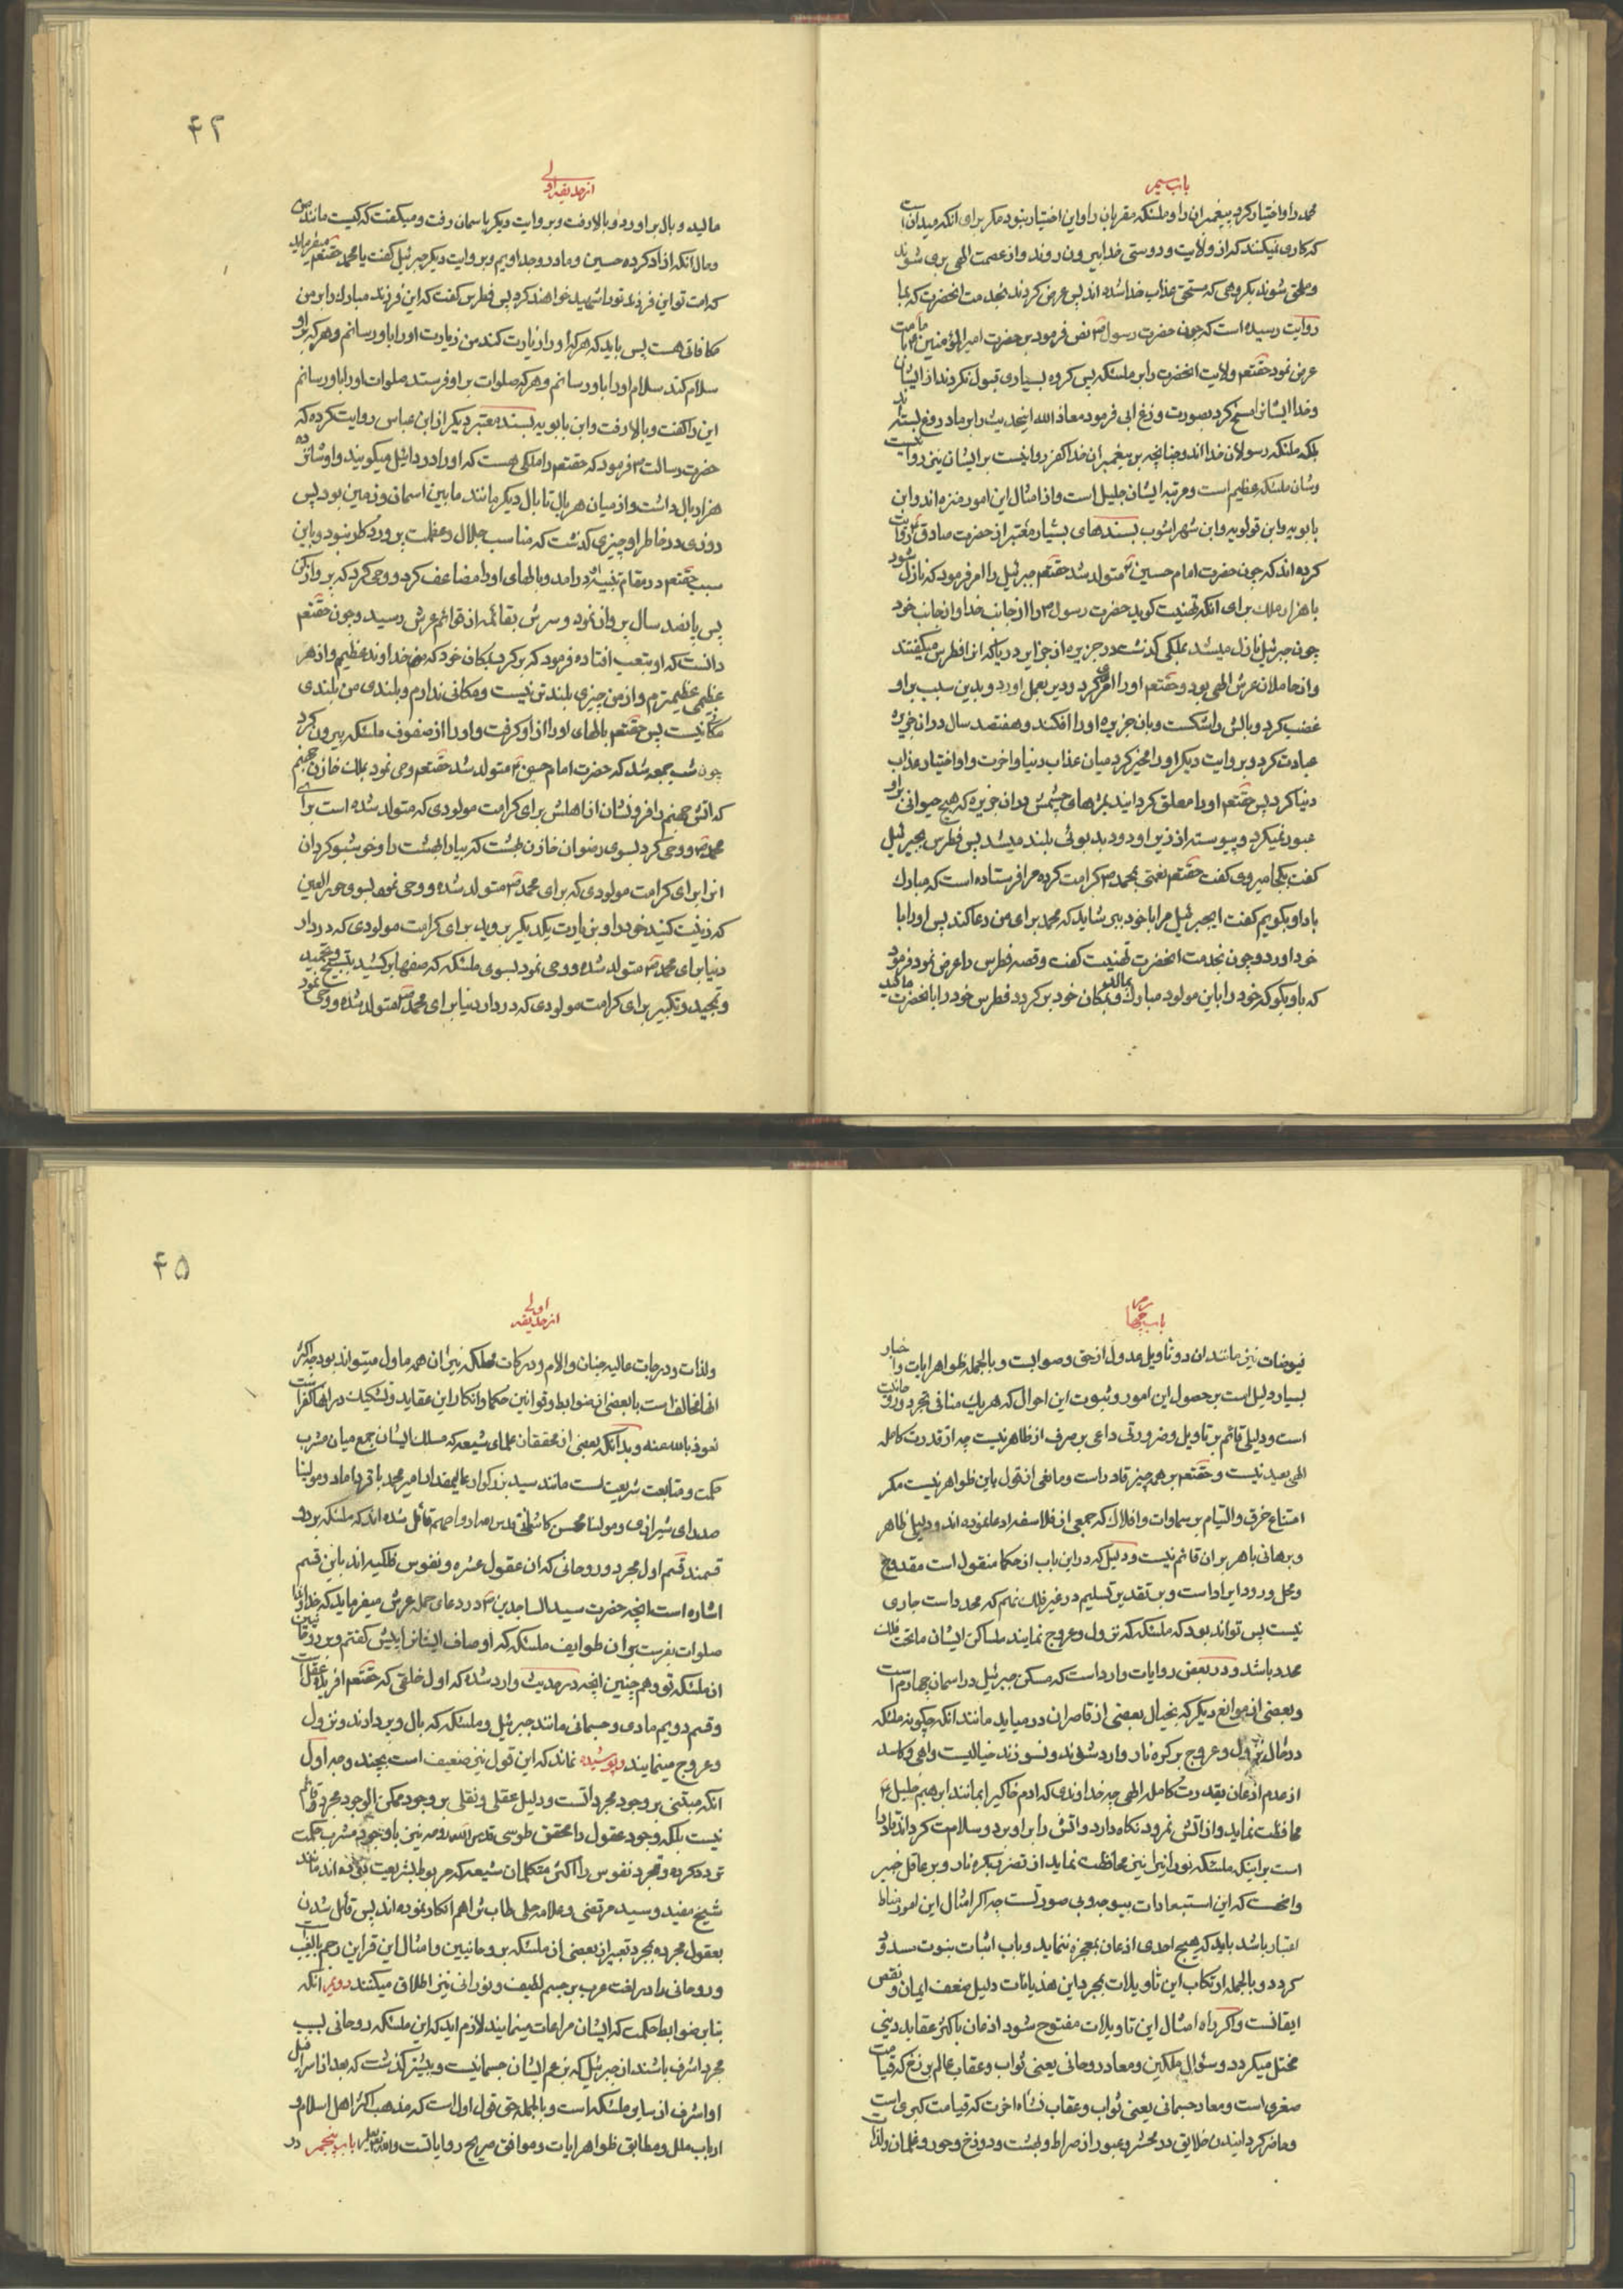 باب سیم
محمد را و اختیار کرد پیغمبران را و ملئکه مقربان را و این اختیار ننمود مکر برای انکه میدانست
که کاری نمیکنند که از ولایت و دوستی خدا بیرون روند و از عصمت الهی بری شوند
و ملحق شوند بکروهی که مستحق عذاب خدا شده اند پس عرض کردند بخدمت انحضرت که بما
روایت رسیده است که چون حضرت رسول ص نص فرمود بر حضرت امیرالمؤمنین ع بامامت
عرض نمود حقتعم ولایت انحضرت را بر ملئکه پس کروه بسیاری قبول نکردند از ایشان
و خدا ایشانرا مسخ کرد بصورت وزغ ابی فرمود معاذ الله اینحدیث را بر ما دروغ بسته اند
بلکه ملئکه رسولان خدا اند و چنانچه بر پیغمبران خدا کفر روا نیست بر ایشان نیز روا نیست
و شان ملئکه عظیم است و مرتبه ایشان جلیل است و از امثال این امور منزه اند و ابن
بابویه و ابن قولویه و ابن شهراشوب بسندهای بسیار معتبر از حضرت صادق ع روایت
کرده اند که چون حضرت امام حسین ع متولد شد حقتعم جبرئیل را امر فرمود که نازل شود
با هزار ملک برای انکه تهنیت کوید حضرت رسول ص را از جانب خدا و از جانب خود
چون جبرئیل نازل میشد بملکی کذشت در جزیره از جزایر دریا که انرا فطرس میکفتند
و از حاملان عرش الهی بود و حقتعم اورا امری کرد و دیر بعمل اورد و بدین سبب بر او
غضب کرد و بالش را شکست و بان جزیره اورا افکند و هفتصد سال در ان جزیره
عبادت کرد و بروایت دیکر اورا مخیر کرد میان عذاب دنیا و اخرت و او اختیار عذاب
دنیا کرد پس حقتعم اورا معلق کردانید بمژهای چشمش در ان جزیره که هیچ حیوانی بر او
عبور نمیکرد و پیوسته از زیر او دود بد بوئی بلند میشد پس فطرس بجبرئیل
کفت بکجا میروی کفت حقتعم نعمتی بمحمد ص کرامت کرده مرا فرستاده است که مبارک
باد او بکویم کفت ایجبرئیل مرا با خود ببر شاید که محمد برای من دعا کند پس اورا با
خود اورد و چون بخدمت انحضرت تهنیت کفت و قصه فطرس را عرض نمود فرمود
که باو بکو که خود را باین مولود مبارک بمالد و بمکان خود برکردد فطرس خود را بانحضرت مالید
۴۲
از حدیقه اولی
مالید و بال براورد و بالا رفت و بروایت دیکر باسمان رفت و میکفت که کیست مانند من
و حال انکه ازاد کرده حسین و مادر و جد اویم و بروایت دیکر جبرئیل کفت یا محمد حقتعم میفرماید
که امت تو این فرزند تو را شهید خواهند کرد پس فطرس کفت که این فرزند مبارک را بر من
مکافاتی هست پس باید که هر که اورا زیارت کند من زیارت اورا باو رسانم و هر که بر او
سلام کند سلام اورا باو رسانم و هر که صلوات بر او فرستد صلوات اورا باو رسانم
این را کفت و بالا رفت و ابن بابویه بسند معتبر دیکر از ابن عباس روایت کرده که
حضرت رسالت ص فرمود که حقتعم را ملکی هست که اورا دردائیل میکویند و او شانزده
هزار بال داشت و از میان هر بال تا بال دیکر مانند مابین اسمان و زمین بود پس
روزی در خاطر او چیزی کذشت که مناسب جلال و عظمت پروردکار نبود و باین
سبب حقتعم در مقام تنبیه او درامد و بالهای اورا مضاعف کرد و وحی کرد که پرواز کن
پس پانصد سال پرواز نمود و سرش بقائمه از قوائم عرش رسید و چون حقتعم
دانست که او بتعب افتاده فرمود که برکرد بمکان خود که منم خداوند عظیم و از هر
عظیمی عظیمترم و از من چیزی بلندتر نیست و مکانی ندارم و بلندی من بلندی
مکانی نیست پس حقتعم بالهای اورا از او کرفت و اورا از صفوف ملئکه بیرون کرد
چون شب جمعه شد که حضرت امام حسین ع متولد شد حقتعم وحی نمود بملک خازن جهنم
که اتش جهنم را فرو نشان از اهلش برای کرامت مولودی که متولد شده است برای
محمد ص و وحی کرد بسوی رضوان خازن بهشت که بیارا بهشت را و خوشبو کردان
انرا برای کرامت مولودی که برای محمد ص متولد شده و وحی نمود بسوی حورالعین
که زینت کنید خود را و بزیارت یکدیکر بروید برای کرامت مولودی که در دار
دنیا برای محمد ص متولد شده و وحی نمود بسوی ملئکه که صفها بر کشید بتسبیح و تحمید
و تمجید و تکبیر برای کرامت مولودی که در دار دنیا برای محمد ص متولد شده و وحی نمود
باب چهارم
فیوضات نیز مانند ان در تاویل عدول از حق و صوابست و بالجمله ظواهر ایات و اخبار
بسیار دلیل است بر حصول این امور و ثبوت این احوال که هر یک منافی تجرد و روحانیت
است و دلیلی قائم بر تاویل و ضرورتی داعی بر صرف از ظاهر نیست چه از قدرت کامله
الهی بعید نیست و حقتعم بر همه چیز قادر است و مانعی از قول باین ظواهر نیست مکر
امتناع خرق و التیام بر سماوات و افلاک که جمعی از فلاسفه ادعا نموده اند و دلیل ظاهر
و برهانی باهر بران قائم نیست و دلیل که در این باب از حکما منقول است مقدوح
و محل ورود ایراد است و بر تقدیر تسلیم در غیر فلک نهم که محدد است جاری
نیست پس تواند بود که ملئکه که نزول و عروج نمایند مساکن ایشان ماتحت فلک
محدد باشد و در بعض روایات وارد است که مسکن جبرئیل در اسمان چهارم است
و بعضی از موانع دیکر که بخیال بعضی از قاصران درمیاید مانند انکه چکونه ملئکه
در حال نزول و عروج بر کره نار وارد شوند و نسوزند خیالیست واهی و کاسد
از عدم اذعان بقدرت کامله الهی چه خداوندی که ادم خاکی را بمانند ابرهیم خلیل ع
محافظت نماید و از اتش نمرود نکاه دارد و اتش را بر او برد و سلامت کرداند قادر
است بر اینکه ملئکه نورانیرا نیز محافظت نماید از تضرر بکره نار و بر عاقل خبیر
واضحست که این استبعادات بیوجه و بی صورتست چه اکر امثال این امور مناط
اعتبار باشد باید که هیچ احدی اذعان بمعجزه ننماید و باب اثبات نبوت مسدود
کردد و بالجمله ارتکاب این تاویلات بمجرد این هذیانات دلیل ضعف ایمان و نقص
ایقانست و اکر راه امثال این تاویلات مفتوح شود اذعان باکثر عقاید دینی
مختل میکردد و سئوال ملکین و معاد روحانی یعنی ثواب و عقاب عالم برزخ که قیامت
صغری است و معاد جسمانی یعنی ثواب و عقاب نشاه اخرت که قیامت کبری است
و حاضر کردانیدن خلایق در محشر و عبور از صراط و بهشت و دوزخ و حور و غلمان و لذات
۴۵
از حدیقه اولی
و لذات و درجات عالیه جنان و الام و درکات مهلکه نیران همه ماول میتواند بود چه اکثر
انها مخالف است با بعضی از ضوابط و قوانین حکما و انکار این عقاید و تشکیک در انها کفر است
نعوذ بالله عنه و بدانکه بعضی از محققان علمای شیعه که مسلک ایشان جمع میان مشرب
حکمت و متابعت شریعت است مانند سید بزرکوار عالیمقدار امیر محمد باقر داماد و مولینا
صدرای شیرازی و مولینا محسن کاشانی قدس الله ارواحهم قائل شده اند که ملئکه بر دو
قسمند قسم اول مجرد و روحانی که ان عقول عشره و نفوس فلکیه اند باین قسم
اشاره است انچه حضرت سیدالساجدین ع در دعای حمله عرش میفرماید که خداوندا
صلوات بفرست بر ان طوایف ملئکه که اوصاف ایشانرا پیش کفتم و بر روحانیین
از ملئکه تو و هم چنین انچه در حدیث وارد شده که اول خلقی که حقتعم افرید عقل است
و قسم دویم مادی و جسمانی مانند جبرئیل و ملئکه که بال و پر دارند و نزول
و عروج مینمایند و پوشیده نماند که این قول نیز ضعیف است بچند وجه اول
انکه مبتنی بر وجود مجرداتست و دلیل عقلی و نقلی بر وجود ممکن الوجود مجرد قائم
نیست بلکه وجود عقول را محقق طوسی قدس الله روحه نیز با وجود مشرب حکمت
تردد کرده و تجرد نفوس را اکثر متکلمان شیعه که مربوط بشریعت بوده اند مانند
شیخ مفید و سید مرتضی و علامه حلی طاب ثراهم انکار نموده اند پس قائل شدن
بعقول مجرده بمجرد تعبیر از بعضی از ملئکه بروحانیین و امثال این قراین رجم بالغیب است
و روحانی را در لغت عرب بر جسم لطیف و نورانی نیز اطلاق میکنند دویم انکه
بنابر ضوابط حکمت که ایشان مراعات مینمایند لازم اید که این ملئکه روحانی بسبب
تجرد اشرف باشند از جبرئیل که بزعم ایشان جسمانیست و بیشتر کذشت که بعد از اسرافیل
او اشرف از سایر ملئکه است و بالجمله حق قول اول است که مذهب اکثر اهل اسلام و
ارباب ملل و مطابق ظواهر ایات و موافق صریح روایاتست والله یعلم باب پنجم در